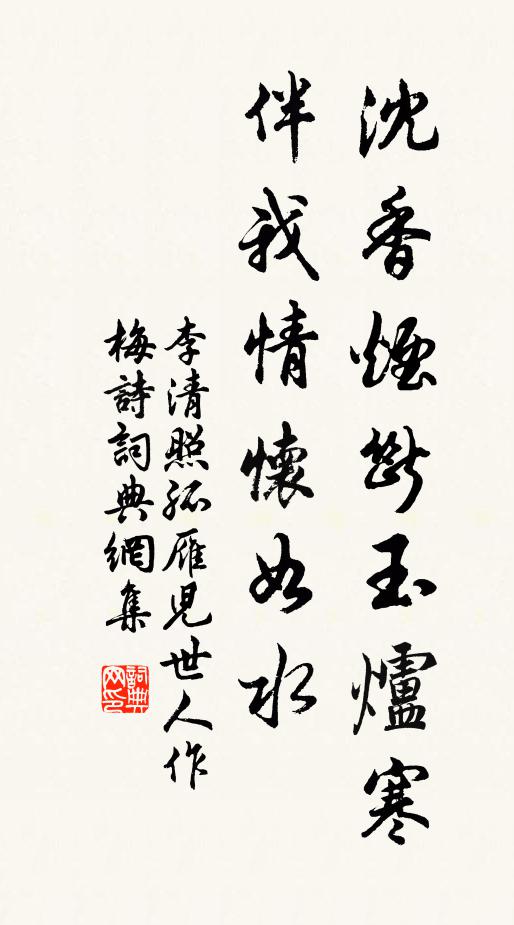 沈香煙斷玉爐寒
伴我情懷如水
李清照孤雁兒世人作
梅詩詞典網集
詞典
网印